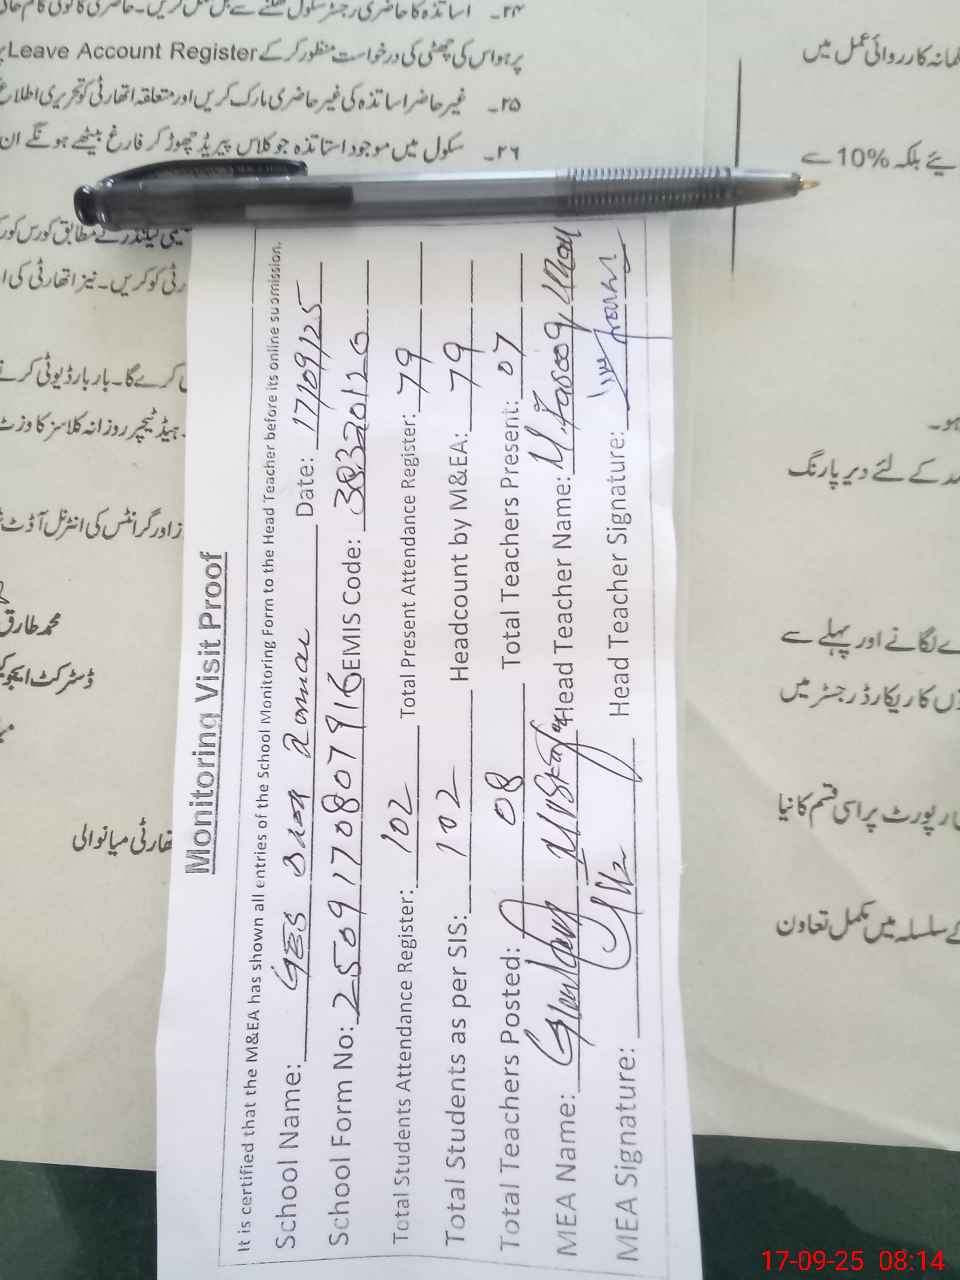 ۲۴۔ اساتذہ کا حاضری رجسٹر سکول
پر ہو اس کی چھٹی کی درخواست منظور کر کے Leave Account Register
۲۵۔ غیر حاضر اساتذہ کی غیر حاضری مارک کریں اور متعلقہ اتھارٹی کو تحریری اطلاع
۲۶۔ سکول میں موجود اساتذہ جو کلاس پیریڈ چھوڑ کر فارغ بیٹھے ہونگے ان
کے مطابق کورس کور
رٹی کو کریں۔ نیز اتھارٹی کی ا
کرے گا۔ بار بار ڈیوٹی کرنے
ہیڈ ٹیچر روزانہ کلاسز کا وزٹ
ز اور گرانٹس کی انٹرنل آڈٹ
محمد طارق
ڈسٹرکٹ ایجوکی
تھارٹی میانوالی
کارروائی عمل میں
یے بلکہ 10% سے
ہو۔
مد کے لئے دیر پارنگ
ے لگانے اور پہلے سے
وں کا ریکارڈ رجسٹر میں
رپورٹ پر اسی قسم کا نیا
کے سلسلہ میں مکمل تعاون
Monitoring Visit Proof
It is certified that the M&EA has shown all entries of the School Monitoring Form to the Head Teacher before its online submission.
School Name: GES Date: 17/09/25
School Form No: 2509170807916 EMIS Code: 38320120
Total Students Attendance Register: 102 Total Present Attendance Register: 79
Total Students as per SIS: 102 Headcount by M&EA: 79
Total Teachers Posted: 08 Total Teachers Present: 07
MEA Name: Head Teacher Name: M. Farooq Khan
MEA Signature: Head Teacher Signature:
17-09-25 08:14